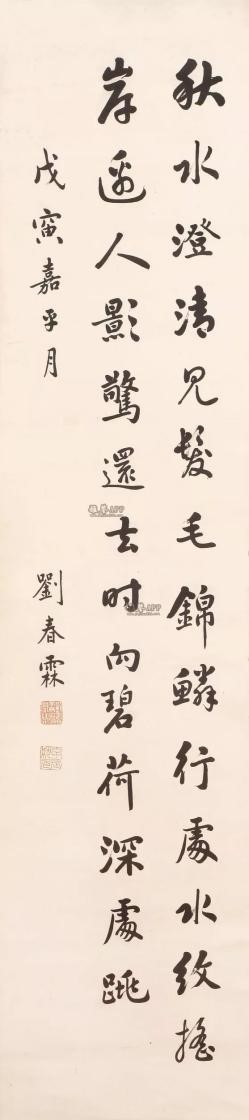 秋水澄清見髮毛錦鱗行處水紋搖
岸邊人影驚還去時向碧荷深處跳
戊寅嘉平月
劉春霖